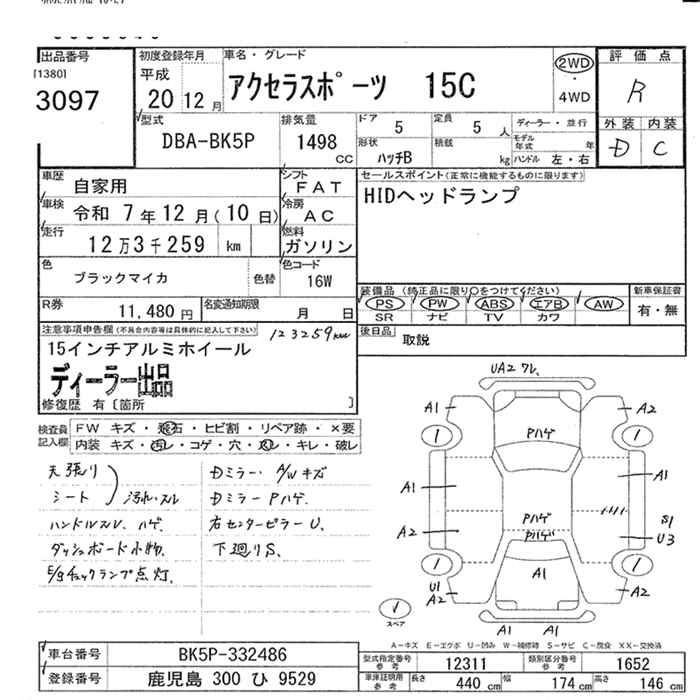 出品番号
[1380]
3097
初度登録年月
平成
20 12 月
車名・グレード
アクセラスポーツ 15C
2WD
・
4WD
評価点
R
外装 内装
D C
型式
DBA-BK5P
排気量
1498
CC
ドア
5
定員
5 人
形状
ハッチB
積載
kg
ディーラー・並行
モデル年式 年
ハンドル 左・右
車歴
自家用
シフト
FAT
車検
令和 7年12月(10日)
冷房
AC
走行
12万3千259 km
燃料
ガソリン
色
ブラックマイカ
色替
色コード
16W
R券
11,480 円
名変通知期限
月 日
セールスポイント(正常に機能するものに限ります)
HIDヘッドランプ
装備品 (純正品に限り○をつけてください)
PS PW ABS エアB AW
SR ナビ TV カワ
新車保証書
有・無
後日品
取説
注意事項申告欄(不具合内容等は具体的に記入して下さい)
123259km
15インチアルミホイール
ディーラー出品
修復歴 有〔箇所 〕
検査員記入欄
FW キズ・飛石・ヒビ割・リペア跡・×要
内装 キズ・汚レ・コゲ・穴・スレ・キレ・破レ
天張り
シート
汚れ・スレ
ハンドルスレ、ハゲ.
ダッシュボード小物.
E/gチェックランプ点灯.
Dミラー・A/Wキズ
DミラーPハゲ.
右センターピラーU.
下廻りS.
UA2 ワレ.
A1
A2
1
1
Pハゲ
A1
A1
A2
Pハゲ
Pハゲ
S1
U3
1
1
A1
U1
A2
A2
1
スペア
A1 A1
A-キズ E-エクボ U-凹み W-補修跡 S-サビ C-腐食 XX-交換済
車台番号
BK5P-332486
登録番号
鹿児島 300 ひ 9529
型式指定番号
参考
12311
類別区分番号
参考
1652
車庫証明用
参考
長さ
440 cm
幅
174 cm
高さ
146 cm